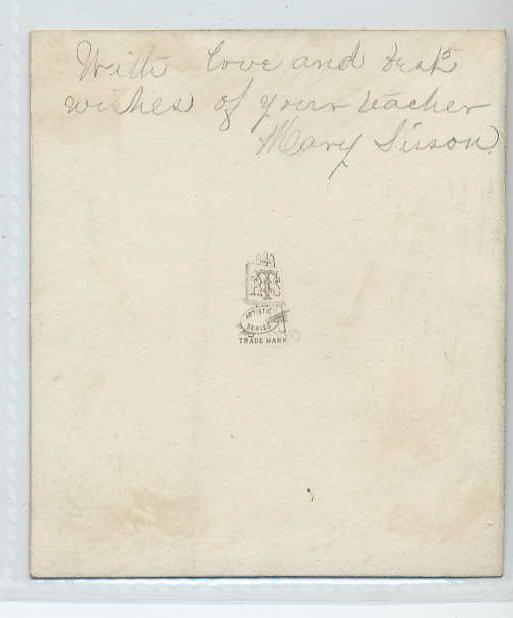 With love and best
wishes of your teacher
Mary Sisson
ARTISTIC
SERIES
TRADE MARK